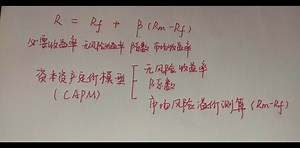 R = Rf + β(Rm-Rf)
必要收益率 无风险收益率 β系数 市场收益率
资本资产定价模型
(CAPM)
无风险收益率
β系数
市场风险溢价测算(Rm-Rf)